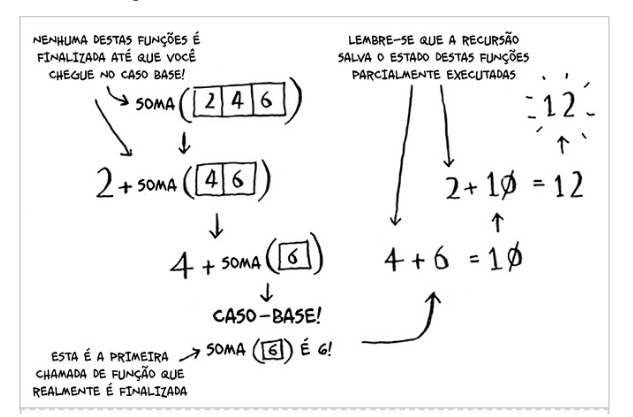 NENHUMA DESTAS FUNÇÕES É
FINALIZADA ATÉ QUE VOCÊ
CHEGUE NO CASO BASE!
SOMA ( 2 4 6 )
2 + SOMA ( 4 6 )
4 + SOMA ( 6 )
CASO-BASE!
SOMA ( 6 ) É 6!
ESTA É A PRIMEIRA
CHAMADA DE FUNÇÃO QUE
REALMENTE É FINALIZADA
LEMBRE-SE QUE A RECURSÃO
SALVA O ESTADO DESTAS FUNÇÕES
PARCIALMENTE EXECUTADAS
12
2 + 10 = 12
4 + 6 = 10